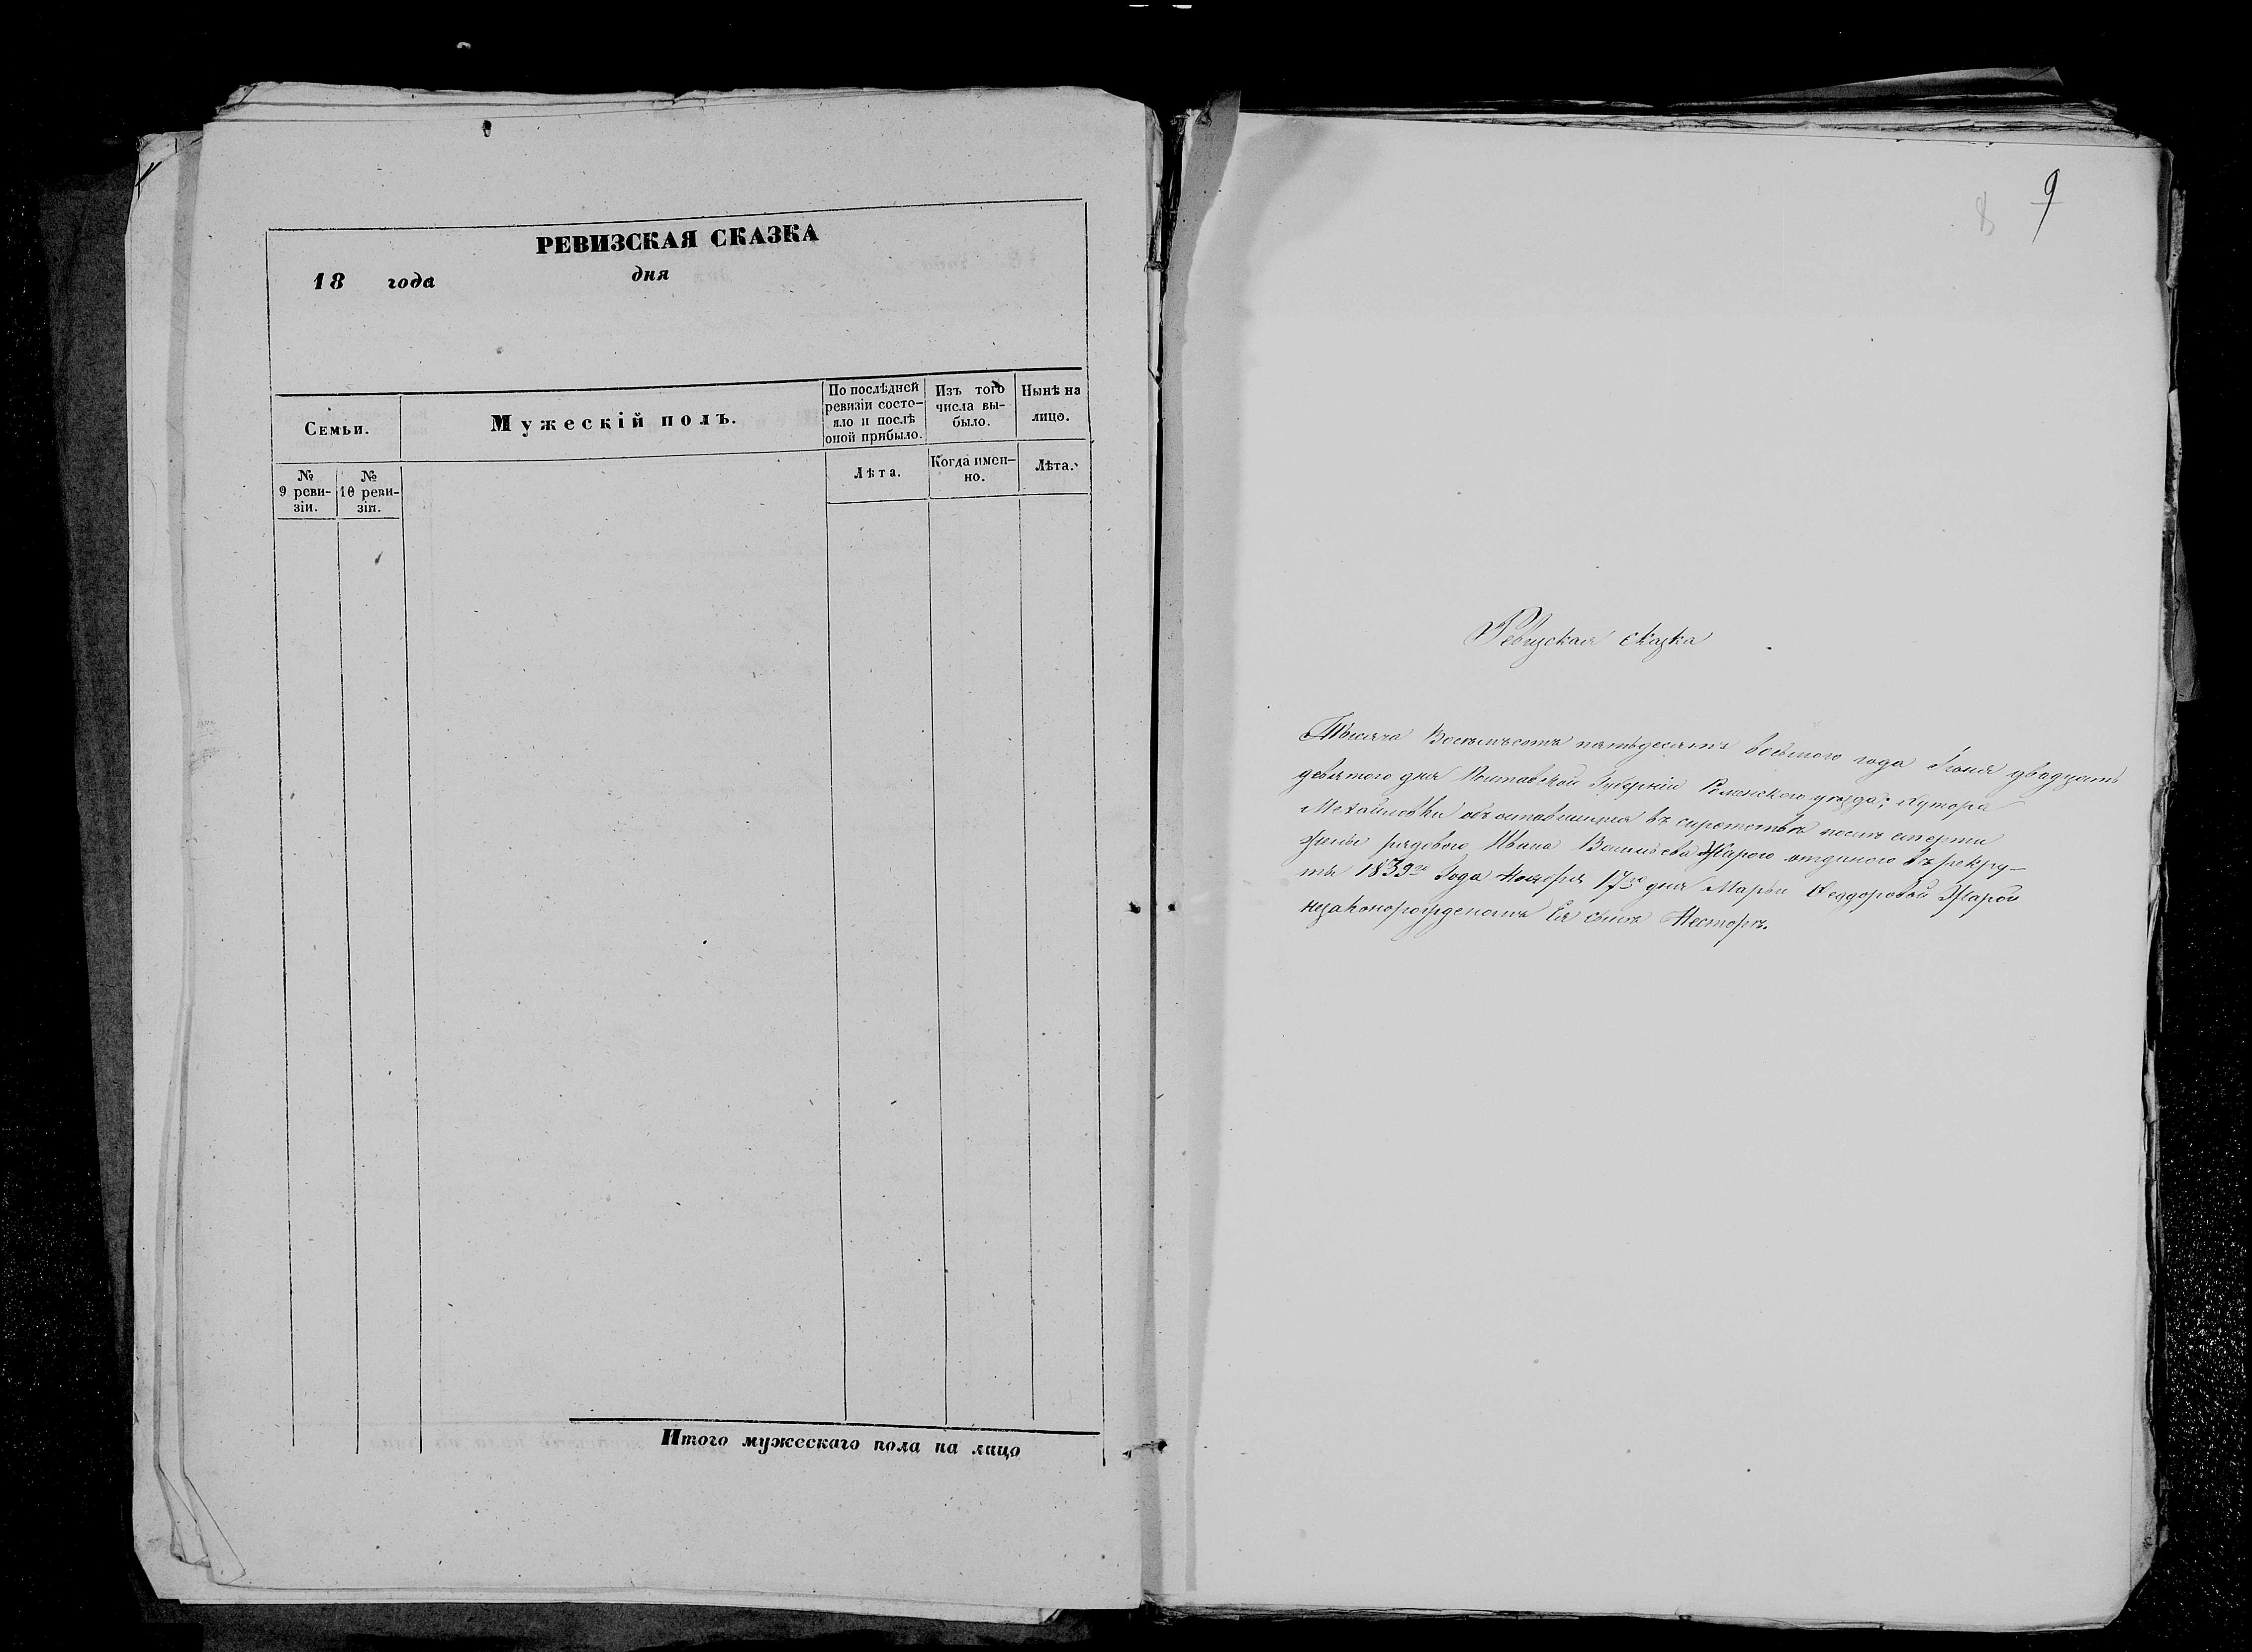 РЕВИЗСКАЯ СКАЗКА
18 года дня
Семьи.
Мужескій полъ.
По послѣдней
ревизіи состо-
яло и послѣ
оной прибыло.
Изъ того
числа вы-
было.
Нынѣ на
лицо.
№
9 реви-
зіи.
№
10 реви-
зіи.
Лѣта.
Когда имен-
но.
Лѣта.
Итого мужескаго пола на лицо
8 9
Ревизская сказка
Тысяча Восемьсотъ пятьдесятъ восьмого года Іюня двадцать
девятого дня Полтавской Губерніи Роменского уезда; Хутора
Михайловки объ оставшимся въ сиротствѣ после смерти
жены рядового Ивана Васильева Жарого отданого въ рекру-
ты 1839го Года Ноября 17го дня Марьи Феодоровой Жарой
незаконорожденомъ Ея сынѣ Несторѣ.